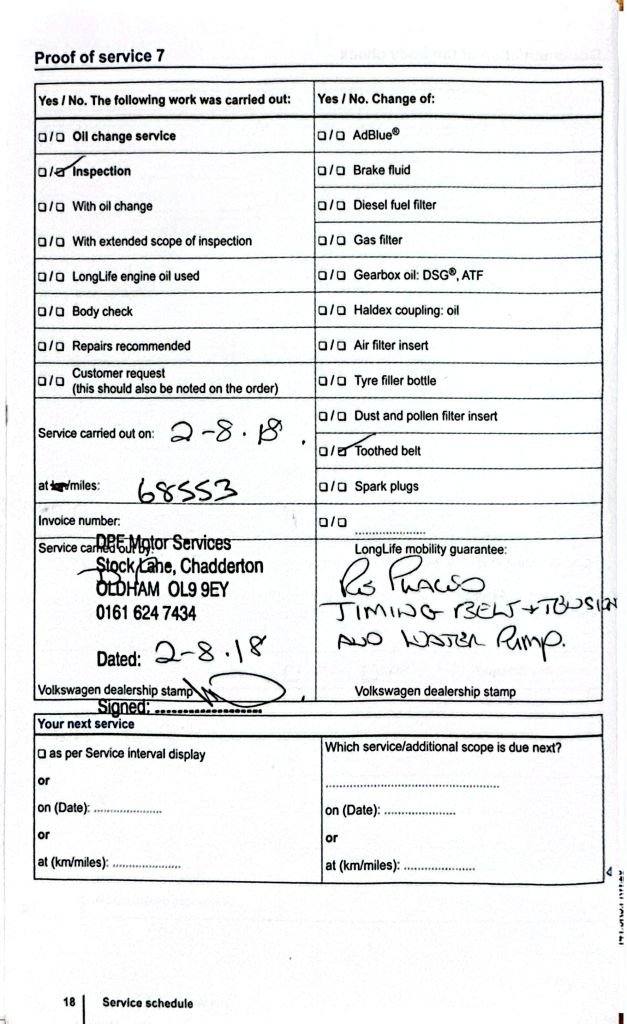 Proof of service 7
Yes / No. The following work was carried out:
❑/❑ Oil change service
❑/❑ Inspection
❑/❑ With oil change
❑/❑ With extended scope of inspection
❑/❑ LongLife engine oil used
❑/❑ Body check
❑/❑ Repairs recommended
❑/❑ Customer request
(this should also be noted on the order)
Service carried out on: 2-8.18.
at km/miles: 68553
Invoice number:
Service carried out by:
DPF Motor Services
Stock Lane, Chadderton
OLDHAM OL9 9EY
0161 624 7434
Dated: 2-8.18
Volkswagen dealership stamp
Signed: ....................
Yes / No. Change of:
❑/❑ AdBlue®
❑/❑ Brake fluid
❑/❑ Diesel fuel filter
❑/❑ Gas filter
❑/❑ Gearbox oil: DSG®, ATF
❑/❑ Haldex coupling: oil
❑/❑ Air filter insert
❑/❑ Tyre filler bottle
❑/❑ Dust and pollen filter insert
❑/❑ Toothed belt
❑/❑ Spark plugs
❑/❑ ....................
LongLife mobility guarantee:
TIMING BELT + TENSION
AND WATER PUMP.
Volkswagen dealership stamp
Your next service
❑ as per Service interval display
or
on (Date): ....................
or
at (km/miles): ....................
Which service/additional scope is due next?
..................................................
on (Date): ....................
or
at (km/miles): ....................
18 Service schedule